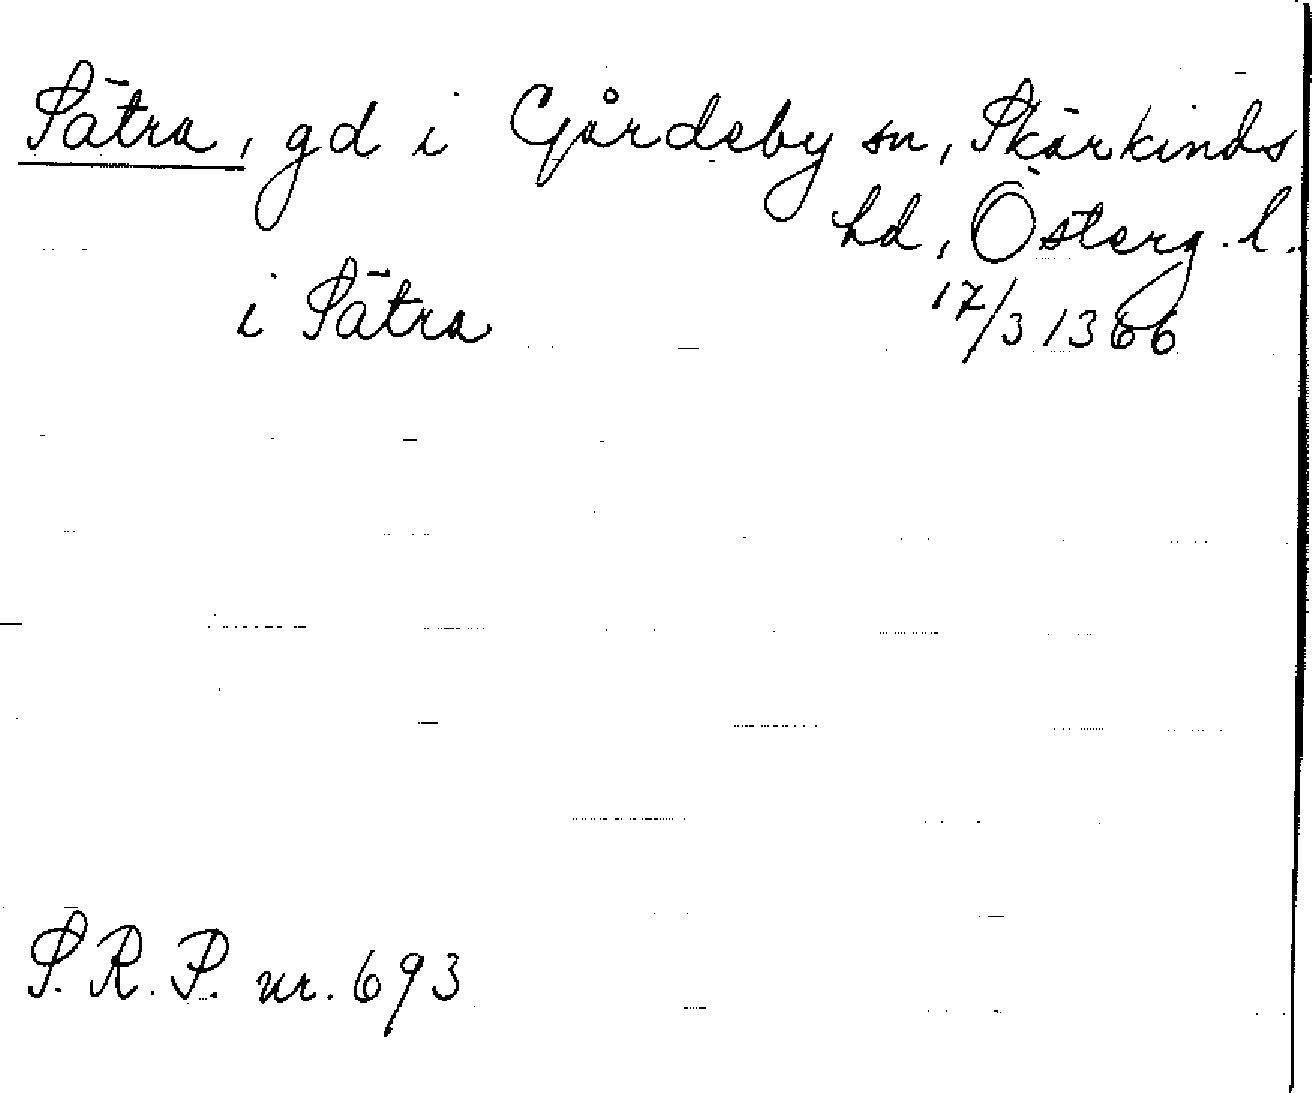 Sätra, gd i Gårdeby sn, Skärkinds
hd, Österg. l.
i Sätra 17/3 1366
S.R.P. nr. 693